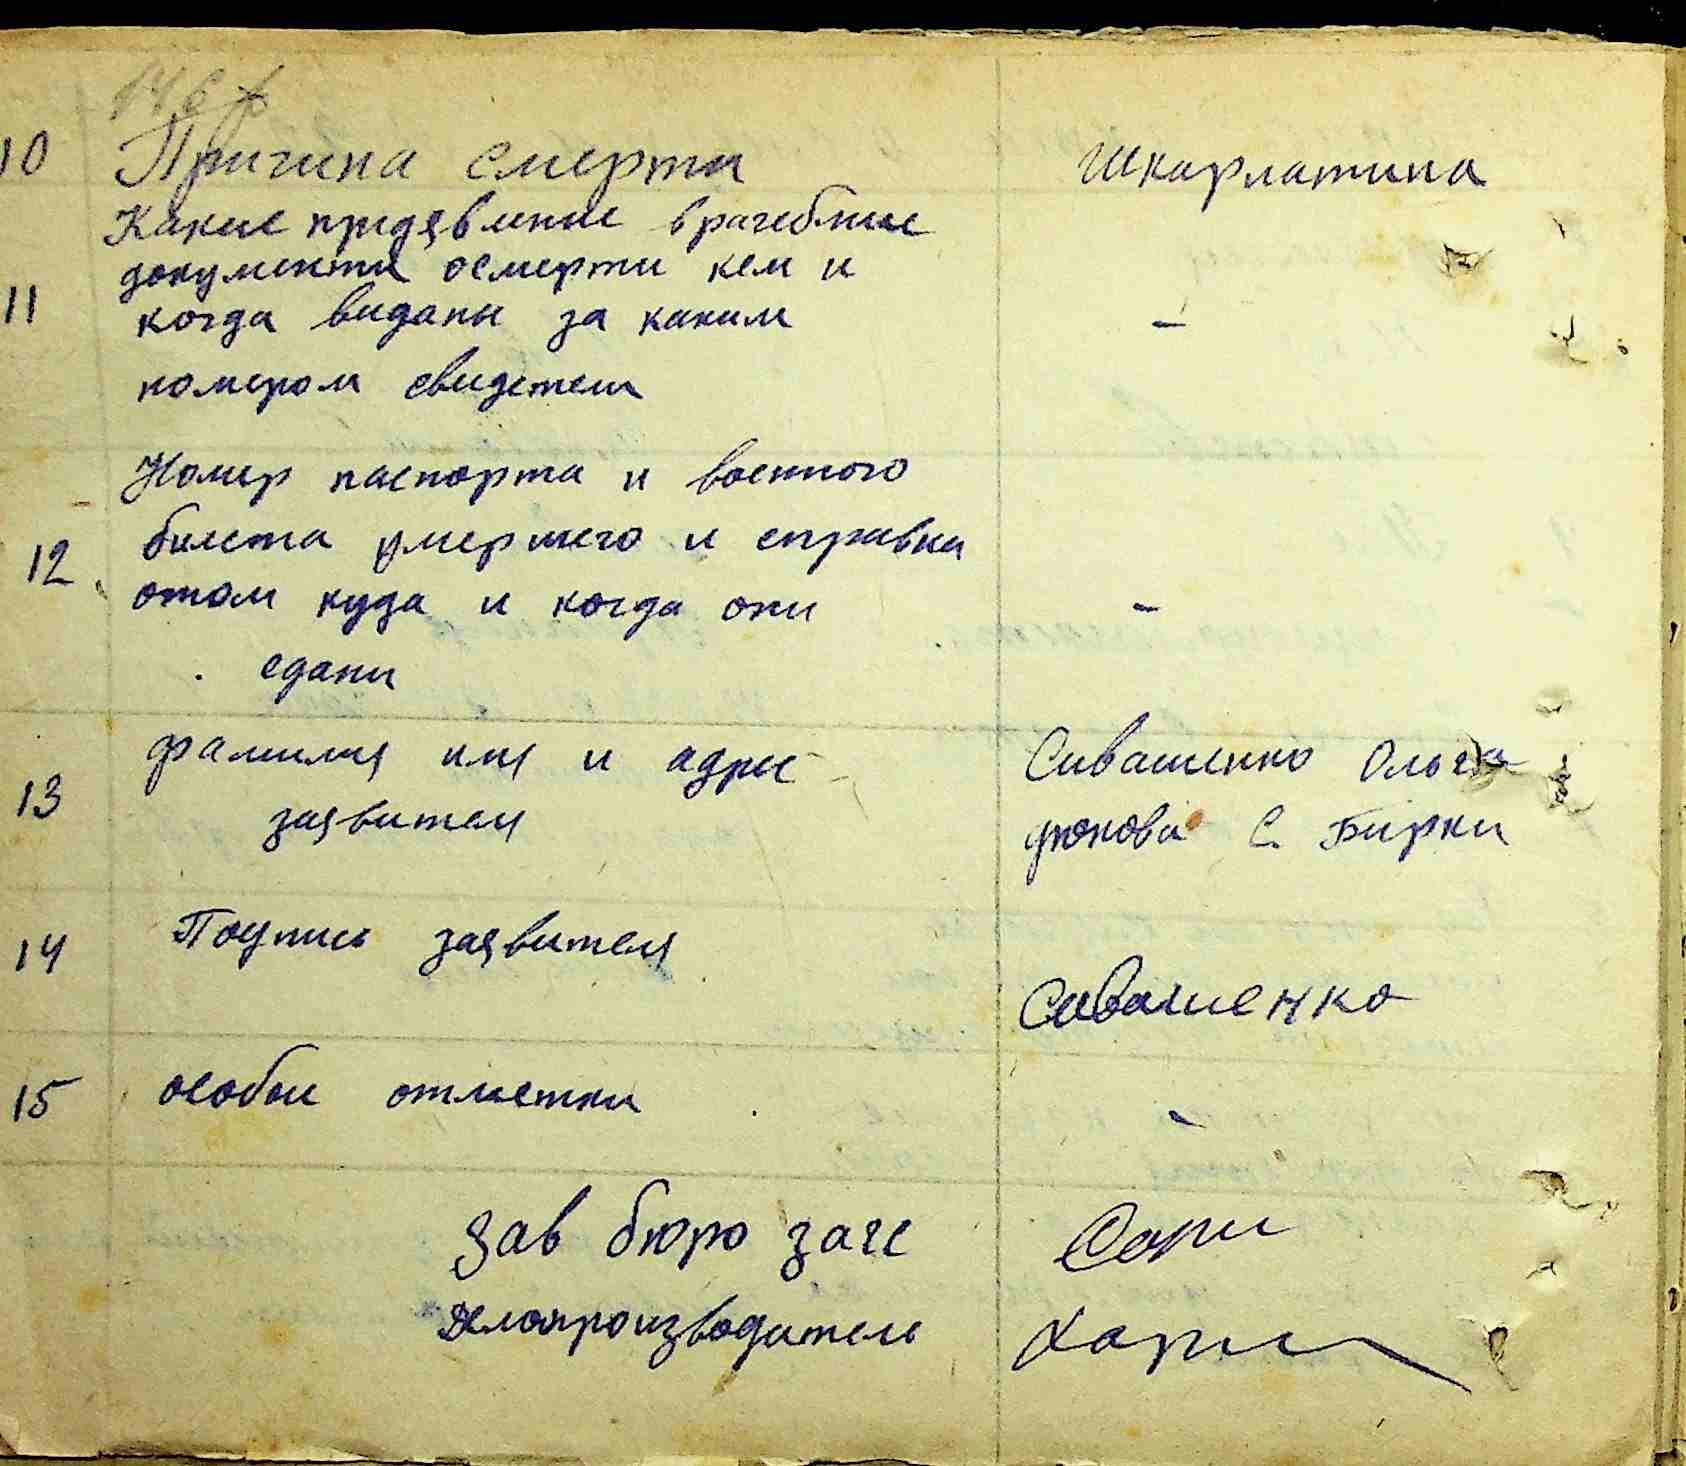 10 Причина смерти Шкарлатина
Какие предявление врачебные
документи осмерти кем и
11 когда видани за каким –
номером свидетели
Номер паспорта и военного
билета умершего и справка
12 отом куда и когда они –
сдани
13 фамилия имя и адрес Сивашенко Ольга
заявителя дюкова С. Бирки
14 Подпись заявителя
Сивашенко
15 особые отметки -
Зав бюро загс
Делопроизводитель